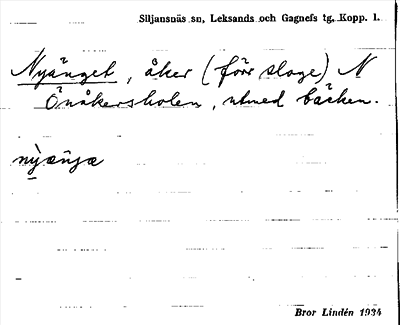 Siljansnäs sn, Leksands och Gagnefs tg, Kopp. l.
Nyänget, åker (förr sloge) N
Önåkersholen, utmed bäcken.
nỳæŋjæ
Bror Lindén 1934